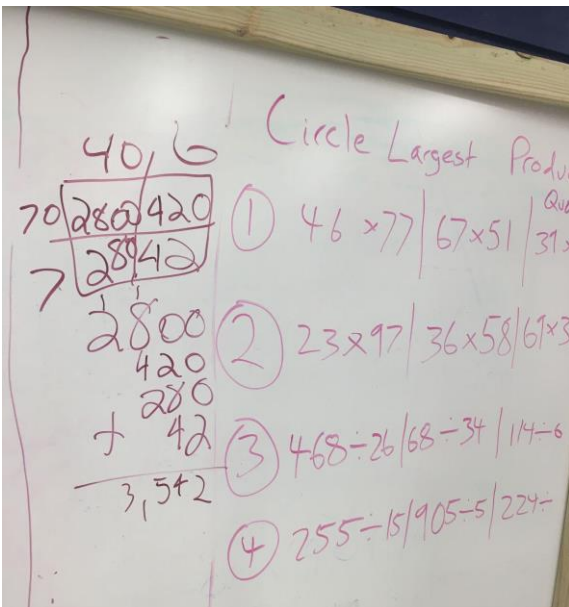 40, 6
70 2800 420
7 280 42
2800
420
280
+ 42
3,542
Circle Largest
① 46 ×77 | 67×51 |
② 23×97 | 36×58 |
③ 468÷26 | 68÷34 | 114÷6
④ 255÷15 | 905÷5 |